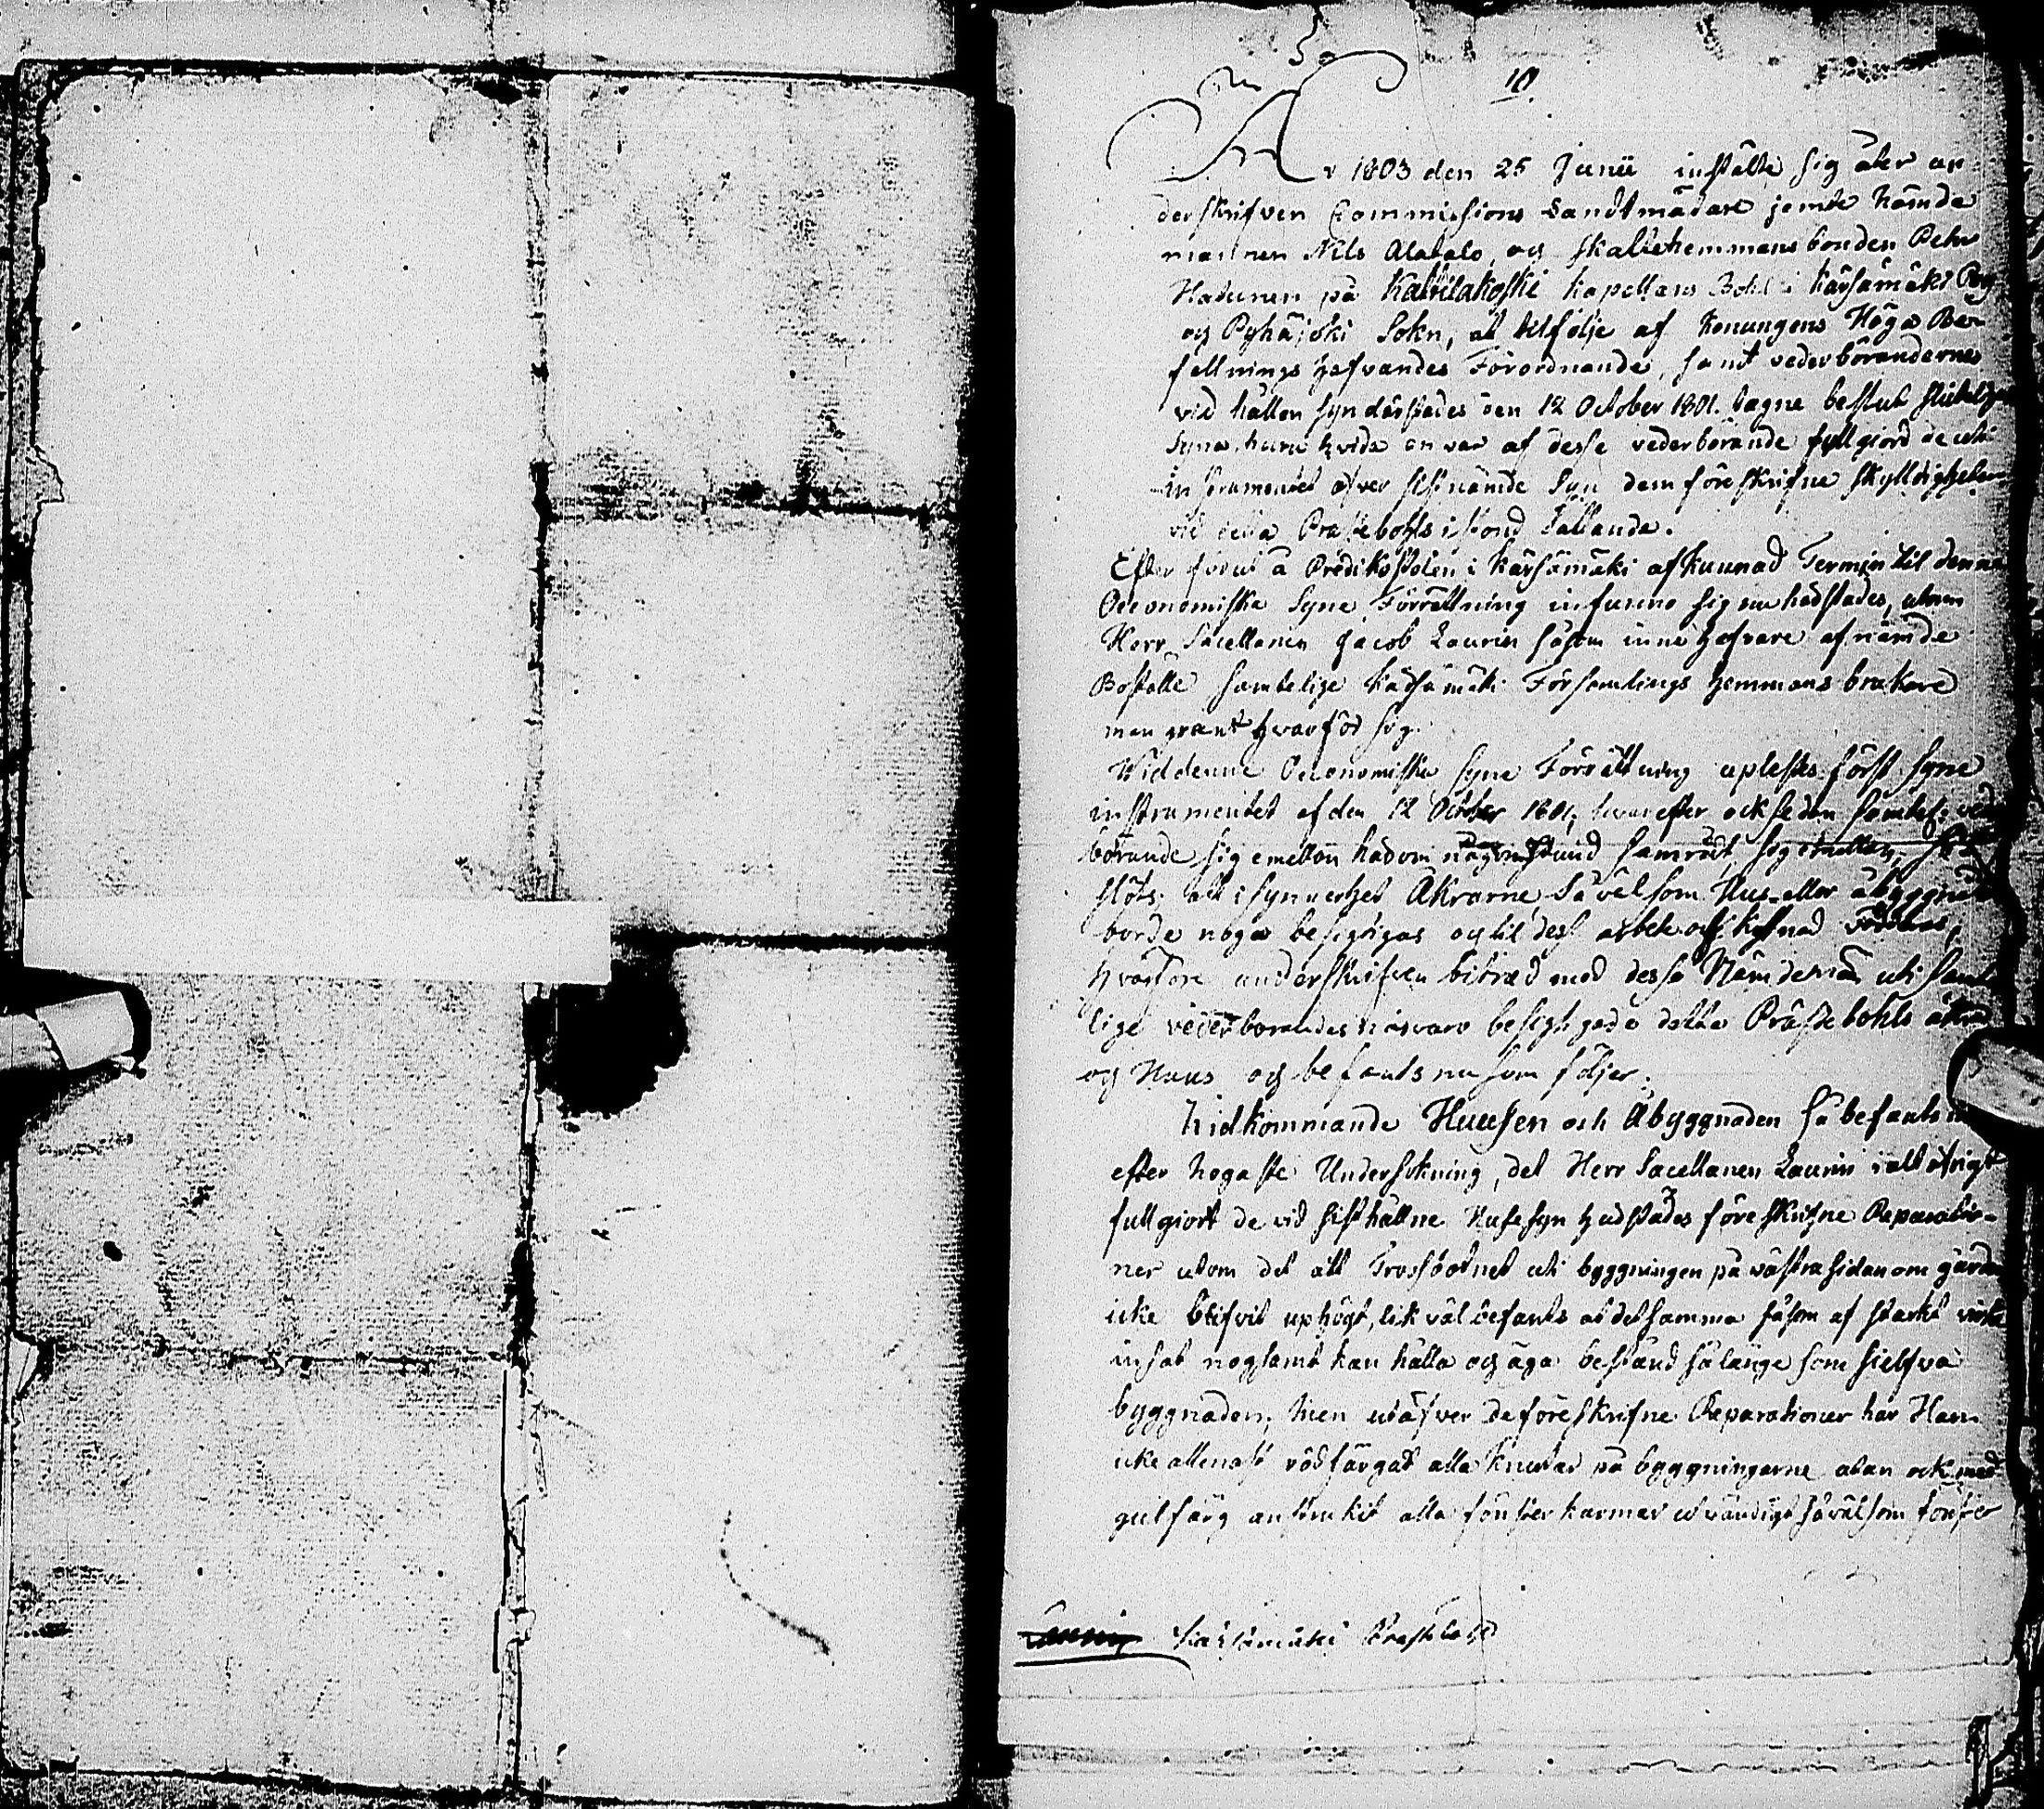 År 1803 den 25 Junii instälte sig åter un-
derskrifven Commissions Landtmätare jemte Nämde
mannen Nils Alatalo, og skattehemmans bonden Pehr
Hatunen på Kattilakoski kapellans Bohl i Kärsämäki
og Pyhäjoki Sokn, at tilfölje af Konungens Höga Be-
fallnings hafvandes Förordnande, samt vederbörandernes
vid hållen syn därstädes den 12 October 1801. tagne beslut
syna huru vida en var af desse vederbörande fullgiord de uti
instrumentet öfver sistnämde syn dem föreskrifne skylldigheter
vid detta Prästebohls istånd sättande.
Efter förut å Predikostolen i Kärsämäki afkunnad Termin til denna
Oeconomiska Syne Förrättning infunno sig nu härstädes, utom
Herr Sacellanen Jacob Laurin såsom innehafvare af nämde
Boställe samtelige Kärsämäki Församlings hemmans brukare
man grant hvar för sig.
Wid denne Oeconomiska Syne Förrättning uplästes först Syne
instrumentet af den 12 October 1801, hvarefter ock sedan samtel: ved
börande sig emellan hadom någon stund samrådt, sig emellan,
slöts, att i synnerhet Åkrarne, så väl som Hus- eller åbyggnad
borde noga besigtigas og til dess arbete och kostnad
hvarföre underskrifven biträd med desse Nämdemän uti samt
lige vederbörandes närvaro besigtigade detta Prästebohls åkrar
og Huus og befants nu som följer:
Vidkommande Huusen och Åbyggnaden så befants nu
efter nogaste Undersökning, det Herr Sacellanen Laurin i alt öfrigt
fullgiort de vid sisthållne Husesyn härstädes föreskrifne Reparatio-
ner utom det att Trossbotnet uti byggningen på västra sidan om gården
icke blifvit uphögt, lik väl befants at det samma såsom af starkt virke
insat nogsamt kan hålla og äga bestånd så länge som sielfva
byggnaden; Men utöfver de föreskrifne Reparationer har Han
icke allenast rödfärgat alla knutar på byggningarne utan ock med
gul färg anstrukit alla fönster karmar utvändigt så väl som fönster
Kärsämäki Prästbohl